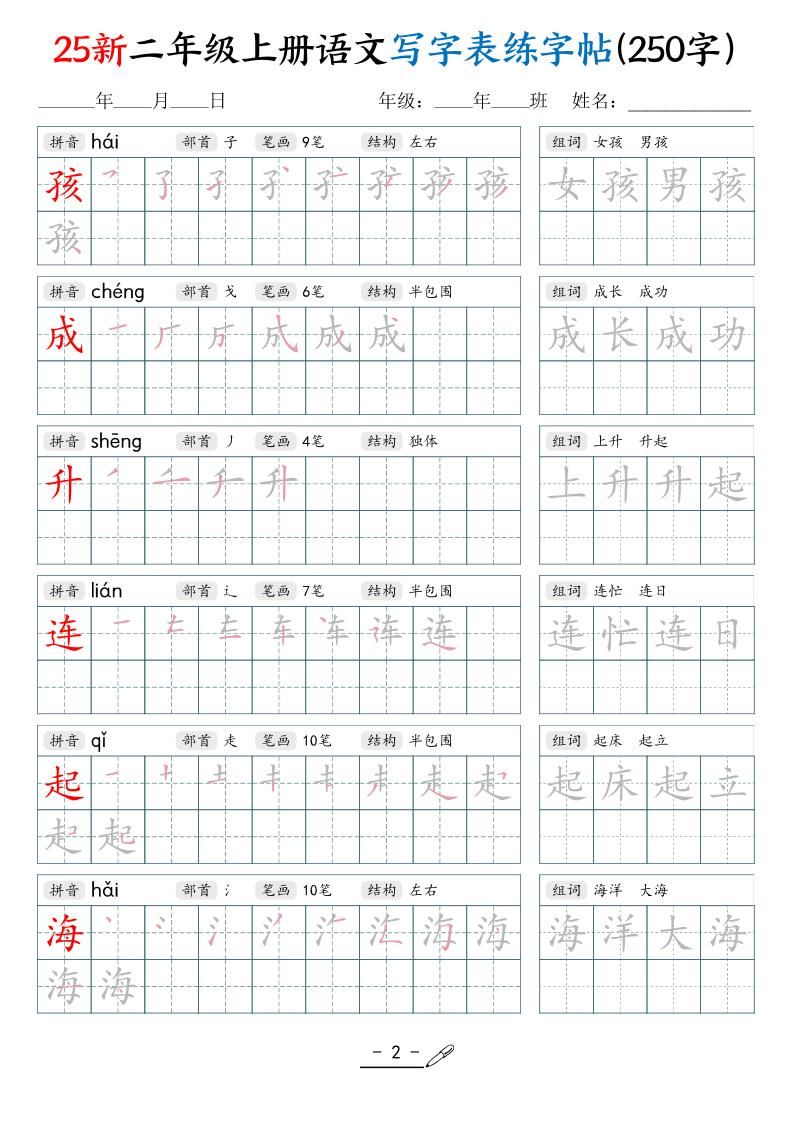 25新二年级上册语文写字表练字帖(250字)
______年____月____日 年级：____年____班 姓名：_____________
拼音 hái 部首 子 笔画 9笔 结构 左右 组词 女孩 男孩
孩 女孩男孩
孩
拼音 chéng 部首 戈 笔画 6笔 结构 半包围 组词 成长 成功
成 成长成功
拼音 shēng 部首 丿 笔画 4笔 结构 独体 组词 上升 升起
升 上升升起
拼音 lián 部首 辶 笔画 7笔 结构 半包围 组词 连忙 连日
连 连忙连日
拼音 qǐ 部首 走 笔画 10笔 结构 半包围 组词 起床 起立
起 起床起立
起 起
拼音 hǎi 部首 氵 笔画 10笔 结构 左右 组词 海洋 大海
海 海洋大海
海 海
- 2 -